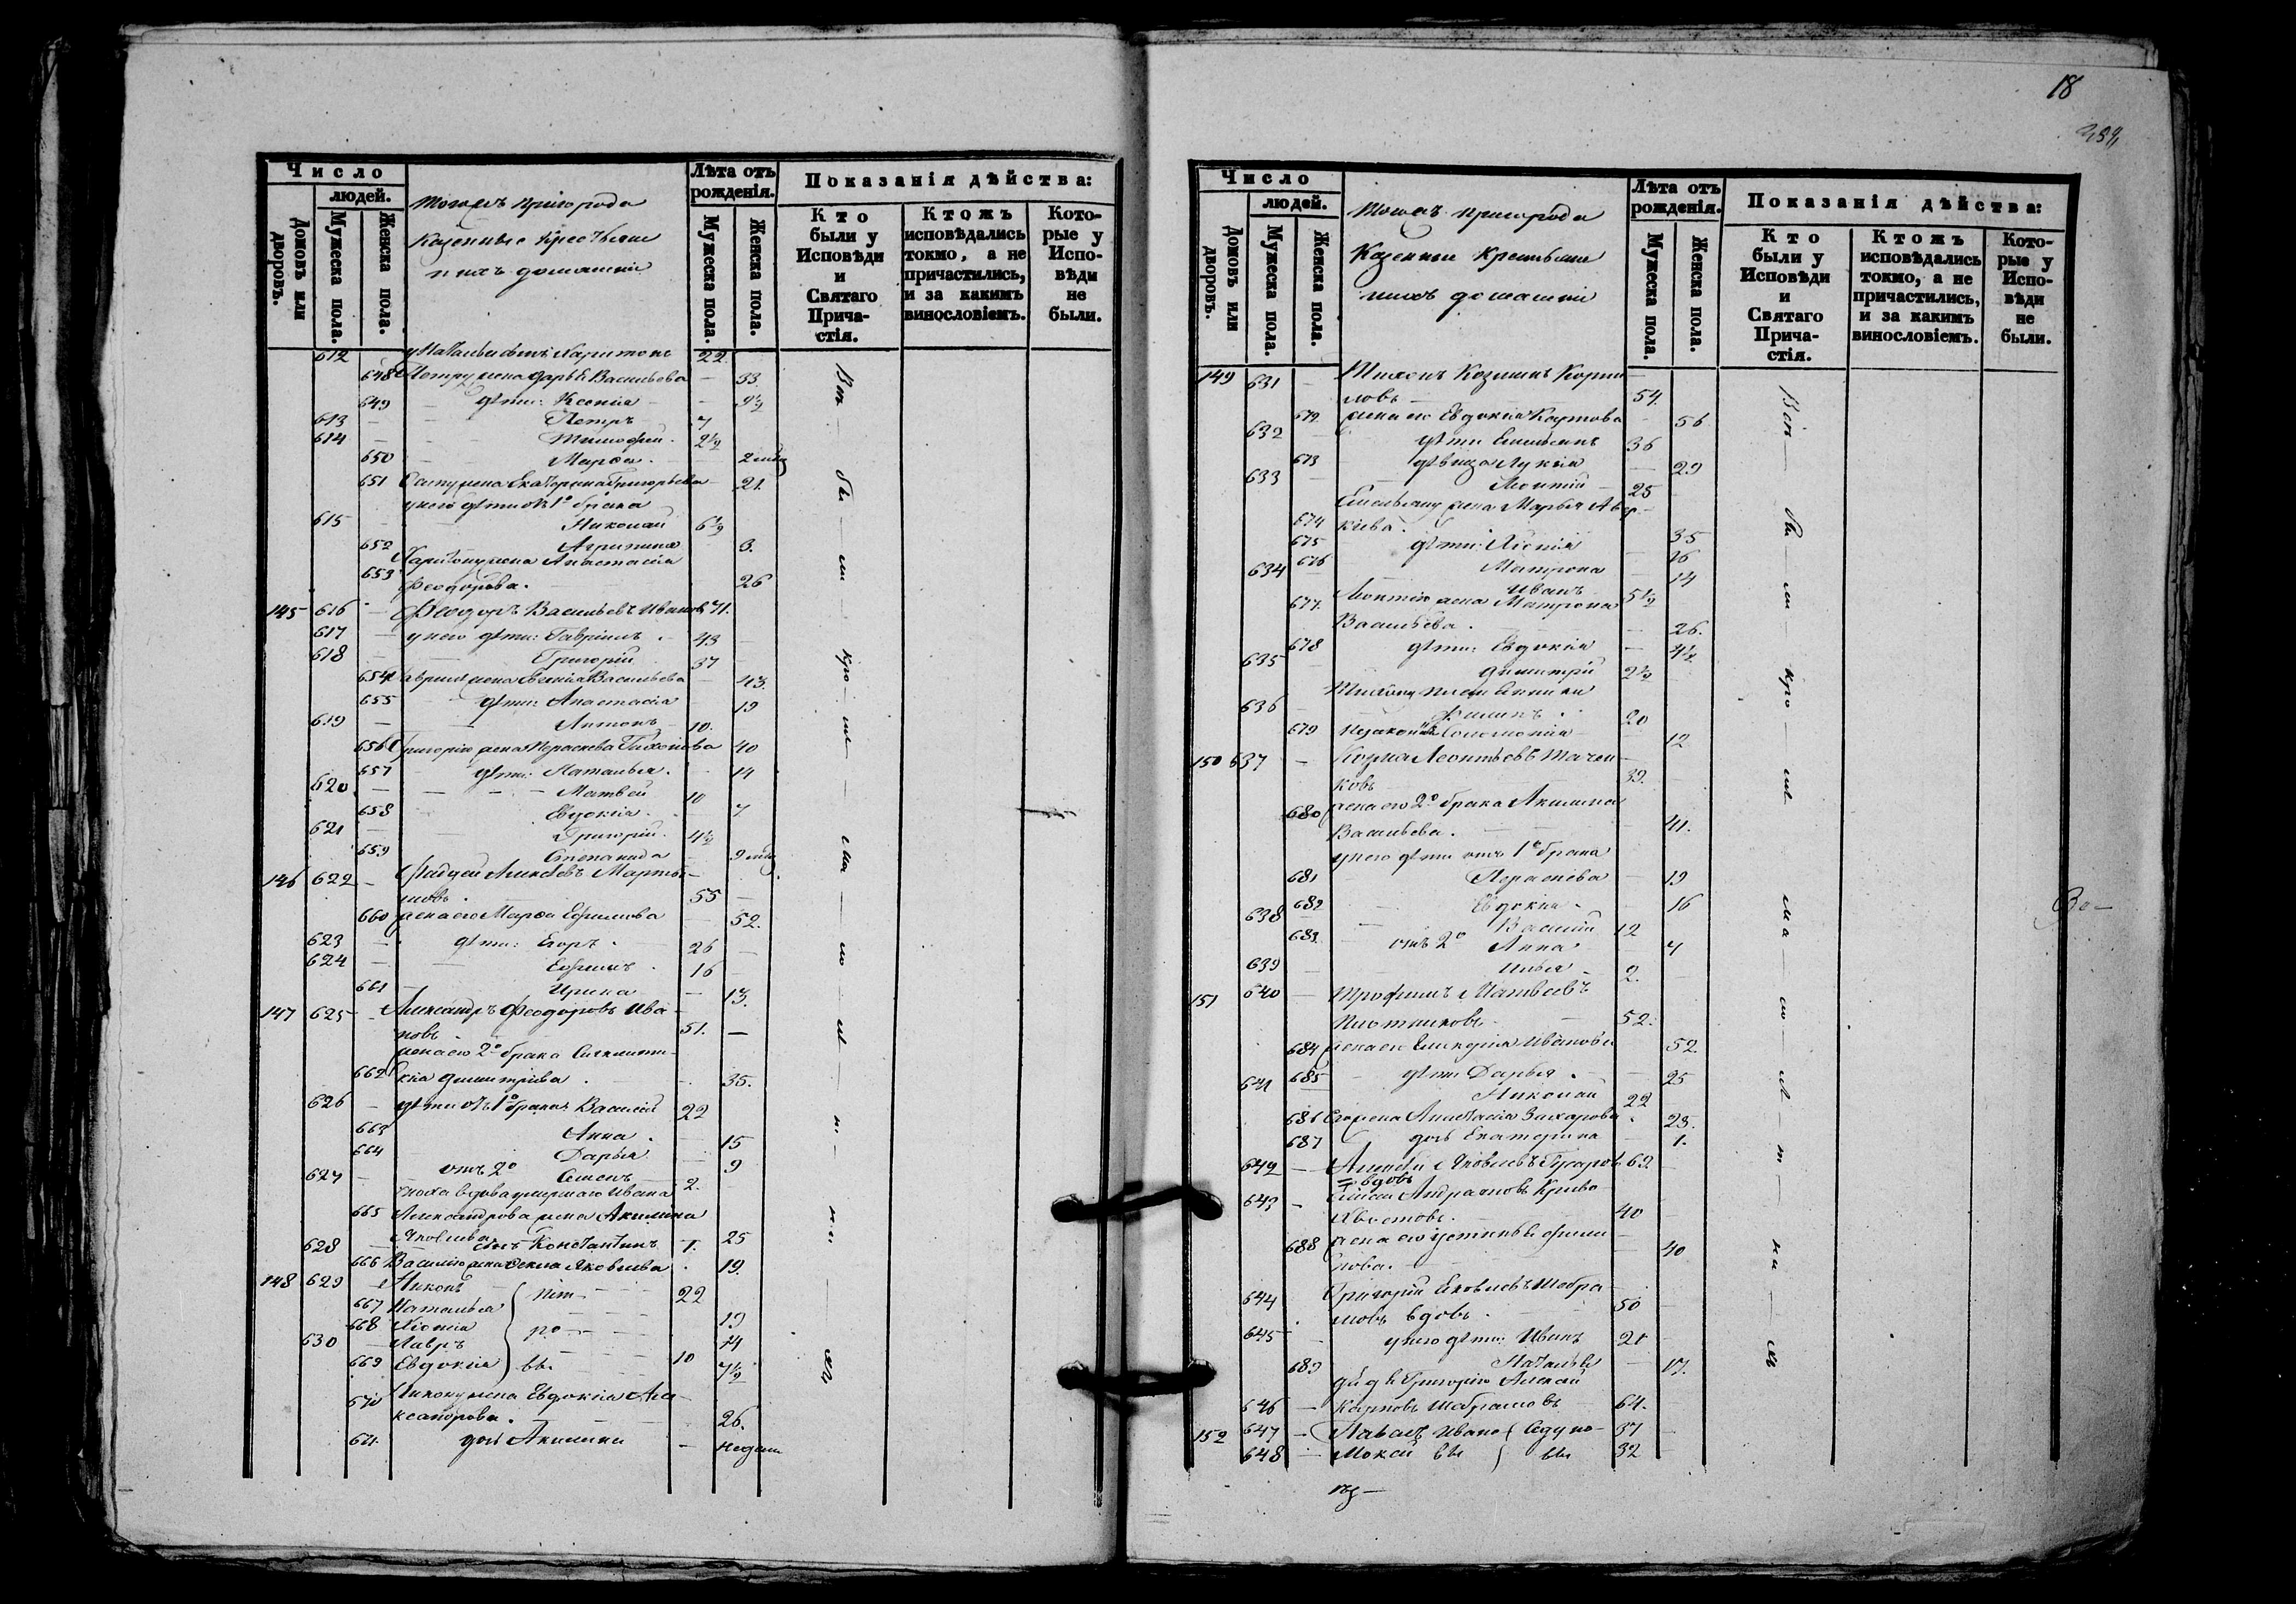 Число
людей.
Домовъ или дворовъ.
Мужеска пола.
Женска пола.
Тогожъ пригорода
Казенные Крестьяне
и ихъ домашніи
Лѣта отъ рожденія.
Мужеска пола.
Женска пола.
Показанія дѣйства:
Кто были у Исповѣди и Святаго Причастія.
Ктожъ исповѣдались токмо, а не причастились, и за какимъ винословіемъ.
Которые у Исповѣди не были.
612 у Натальи сынъ Харитонъ 22.
648 Петру жена Дарья Васильева — 33
649 — дѣти: Ксенія — 9½
613 — Петръ 7
614 — Тимофей. 2½
650 — Марѳа. 2 мѣц
651 жена Екатерина Григорьева 21.
у него дѣти отъ 1го брака
615 — Николай 6½
652 Агрипина 3.
Харитону жена Анастасія
653 Феодорова. 26
145 616 — Феодоръ Васильевъ Ивановъ 71.
617 — у него дѣти: Гавріилъ. — 43 —
618 — Григорій 37
654 Гавріилу жена Евгенія Васильева — 43.
655 — дѣти: Анастасія 19
619 — Антонъ 10.
656 Григорію жена Параскева Тихонова 40
657 дѣти: Наталья. 14
620 — Матвей 10
658 Евдокія. — 7
621 — Григорій. 4½
659 Степанида — 9 мѣц
146 622 — Фадден Алексѣевъ Марты-
новъ. — 55 —
660 жена его Марѳа Ефимова — 52.
623 — дѣти: Егоръ. 26 —
624 — Ефимъ. 16 —
661 — Ирина — 13.
147 625 — Александръ Феодоровъ Ива-
новъ 51. —
жена его 2го брака
662 кія Димитріева. 35.
626 — дѣти отъ 1го брака Василій 22
663 Анна. — 15
664 Дарья — 9
627 — отъ 2го Семенъ 2.
сноха вдова умершаго Ивана
665 Александрова жена Акилина
Яковлева 25
628 — сынъ Константинъ 1.
666 Василію жена Ѳекла Яковлева. 19.
148 629 — Никонъ Пет- 22
667 Наталья 19
668 Хіонія ро- 14
630 — Лавръ 10
669 Евдокія вы 7½
Никону жена Евдокія Але-
670 ксандрова. 26.
671. дочь Акилина — недели
Всѣ — бы — ли — Кро — ме — ма — ло — лѣ — т — ни — хъ
18
Число
людей.
Домовъ или дворовъ.
Мужеска пола.
Женска пола.
Тогожъ пригорода
Казенные Крестьяне
и ихъ домашніи
Лѣта отъ рожденія.
Мужеска пола.
Женска пола.
Показанія дѣйства:
Кто были у Исповѣди и Святаго Причастія.
Ктожъ исповѣдались токмо, а не причастились, и за какимъ винословіемъ.
Которые у Исповѣди не были.
149 631 — Тихонъ Козминъ Корни-
ловъ — 54.
672. жена его Евдокія Карпова 56
632 — дѣти Емельянъ 36
673 — дѣвица Лукія — 29
633 — Леонтій — 25
Емельяну жена Марья Авер-
674 кіева. 35
675 дѣти: Хіонія — 16
676 Матрона — 14
634 Иванъ 5½
677. Леонтію жена Матрона
Васильева. — 26.
678 дѣти: Евдокія — 4½
635 — Димитрій 2½
Тихону
636 — Филипъ. 20
679 Соломонія — 12
150 637 — Козма Леонтьевъ Тачен-
ковъ 39.
680 жена его 2го брака Акилина
Васильева. — 41.
у него дѣти отъ 1го брака
681 Параскева — 19
682 Евдокія. 16
638 — Василій 12
683 — отъ 2го Анна 7
639 — Илья 2.
151 640 — Трофимъ Матвеевъ
Плотниковъ — 52.
684 жена его Гликерія Иванова 52
685 — дѣти Дарья. — 25
641 — Николай 22
686 Его жена Анастасія Захарова. 23.
687 дочь Екатерина — 1.
642 — Алексѣй Яковлевъ 62. —
вдовъ
643 — Андрѣановъ Криво-
хвостовъ. — 40 —
688 жена его Устинья Фили-
пова. — 40
644 — Григорій Яковлевъ Шабра-
мовъ вдовъ. 50 —
645 — у него дѣти: Иванъ 21 —
689 Наталья — 17.
дядя Григорію Алексей
646 — Карповъ Шабрамовъ — 64.
152 647 — Павелъ Ивано Седуно- 37
648 — Мокей вы вы 32
Всѣ — бы — ли — Кро — ме — ма — ло — лѣ — т — ни — хъ